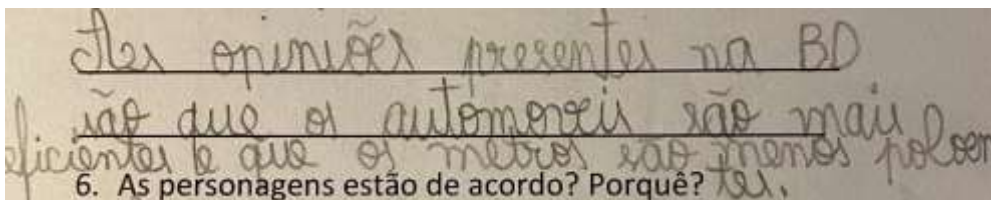 As opiniões presentes na BD
são que os automoveis são mais
eficientes e que os metros são menos poloen
tes.
6. As personagens estão de acordo? Porquê?